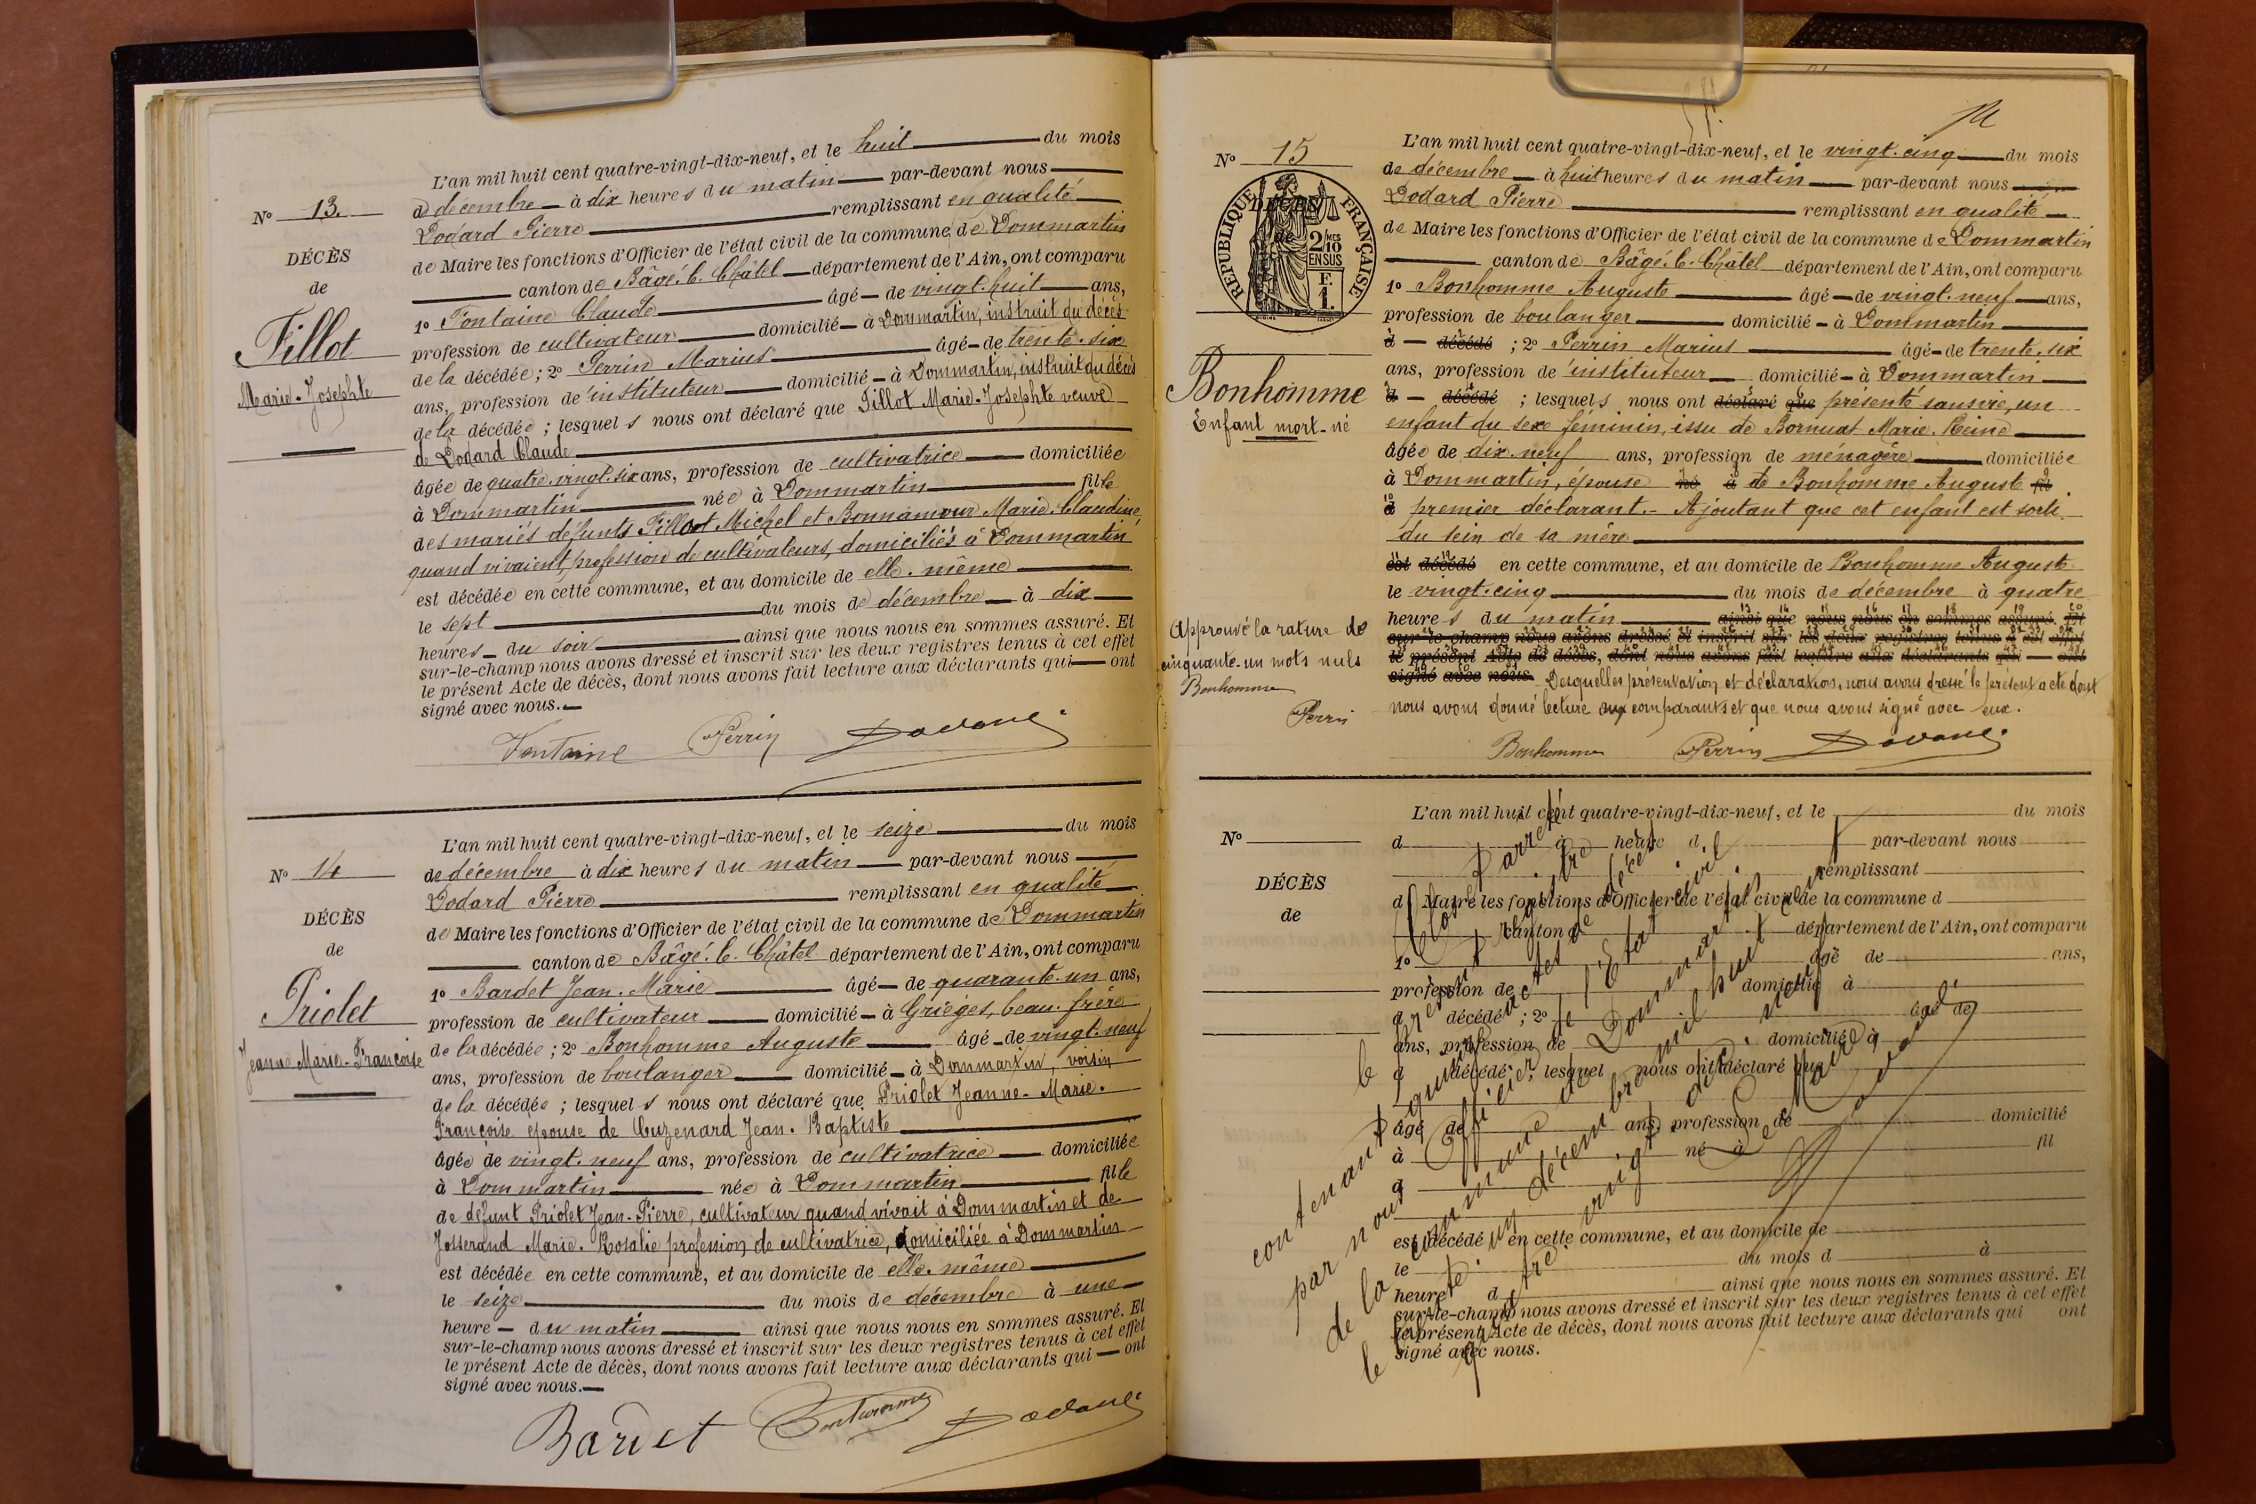 No 13.
DÉCÈS
de
Fillot
Marie-Josephte
L'an mil huit cent quatre-vingt-dix-neuf, et le huit du mois
de décembre à dix heures du matin par-devant nous
Dodard Pierre remplissant en qualité
de Maire les fonctions d'Officier de l'état civil de la commune de Dommartin
canton de Bâgé-le-Châtel département de l'Ain, ont comparu
1o Fontaine Claude âgé de vingt-huit ans,
profession de cultivateur domicilié à Dommartin, instruit du décès
de la décédée; 2o Perrin Marius âgé de trente-six
ans, profession de instituteur domicilié à Dommartin, instruit du décès
de la décédée; lesquels nous ont déclaré que Fillot Marie-Josephte veuve
de Dodard Claude
âgée de quatre-vingt-six ans, profession de cultivatrice domiciliée
à Dommartin née à Dommartin fille
des mariés défunts Fillot Michel et Bonnamour Marie-Claudine,
quand vivaient, profession de cultivateurs, domiciliés à Dommartin
est décédée en cette commune, et au domicile de elle-même
le sept du mois de décembre à dix
heures du soir ainsi que nous nous en sommes assuré. Et
sur-le-champ nous avons dressé et inscrit sur les deux registres tenus à cet effet
le présent Acte de décès, dont nous avons fait lecture aux déclarants qui ont
signé avec nous.
Fontaine Perrin Dodard
No 14
DÉCÈS
de
Priolet
Jeanne Marie-Françoise
L'an mil huit cent quatre-vingt-dix-neuf, et le seize du mois
de décembre à dix heures du matin par-devant nous
Dodard Pierre remplissant en qualité
de Maire les fonctions d'Officier de l'état civil de la commune de Dommartin
canton de Bâgé-le-Châtel département de l'Ain, ont comparu
1o Bardet Jean-Marie âgé de quarante-un ans,
profession de cultivateur domicilié à Grièges, beau-frère
de la décédée; 2o Bonhomme Auguste âgé de vingt-neuf
ans, profession de boulanger domicilié à Dommartin, voisin
de la décédée; lesquels nous ont déclaré que Priolet Jeanne-Marie-
Françoise épouse de Cuzenard Jean-Baptiste
âgée de vingt-neuf ans, profession de cultivatrice domiciliée
à Dommartin née à Dommartin fille
de défunt Priolet Jean-Pierre, cultivateur quand vivait à Dommartin et de
Josserand Marie-Rosalie profession de cultivatrice, domiciliée à Dommartin
est décédée en cette commune, et au domicile de elle-même
le seize du mois de décembre à une
heure du matin ainsi que nous nous en sommes assuré. Et
sur-le-champ nous avons dressé et inscrit sur les deux registres tenus à cet effet
le présent Acte de décès, dont nous avons fait lecture aux déclarants qui ont
signé avec nous.
Bardet Bonhomme Dodard
No 15
RÉPUBLIQUE FRANÇAISE
2/10 MES
EN SUS
F.
1.
DÉCÈS
de
Bonhomme
Enfant mort-né
Approuvé la rature de
cinquante-un mots nuls
Bonhomme
Perrin
L'an mil huit cent quatre-vingt-dix-neuf, et le vingt-cinq du mois
de décembre à huit heures du matin par-devant nous
Dodard Pierre remplissant en qualité
de Maire les fonctions d'Officier de l'état civil de la commune de Dommartin
canton de Bâgé-le-Châtel département de l'Ain, ont comparu
1o Bonhomme Auguste âgé de vingt-neuf ans,
profession de boulanger domicilié à Dommartin
d décédé; 2o Perrin Marius âgé de trente-six
ans, profession de instituteur domicilié à Dommartin
d décédé; lesquels nous ont déclaré que présenté sans vie, un
enfant du sexe féminin, issu de Bornuat Marie-Reine
âgée de dix-neuf ans, profession de ménagère domiciliée
à Dommartin, épouse né à de Bonhomme Auguste fil
d premier déclarant. Ajoutant que cet enfant est sorti
du sein de sa mère
est décédé en cette commune, et au domicile de Bonhomme Auguste
le vingt-cinq du mois de décembre à quatre
heures du matin ainsi que nous nous en sommes assuré. Et
sur-le-champ nous avons dressé et inscrit sur les deux registres tenus à cet effet
le présent Acte de décès, dont nous avons fait lecture aux déclarants qui ont
signé avec nous. Desquelles présentation et déclaration, nous avons dressé le présent acte dont
nous avons donné lecture aux comparants et que nous avons signé avec eux.
Bonhomme Perrin Dodard
No
DÉCÈS
de
L'an mil huit cent quatre-vingt-dix-neuf, et le du mois
d à heure d par-devant nous
remplissant
d Maire les fonctions d'Officier de l'état civil de la commune d
canton d département de l'Ain, ont comparu
1o âgé de ans,
profession de domicilié à
d décédé; 2o âgé de
ans, profession de domicilié à
d décédé; lesquel nous ont déclaré que
âgé de ans, profession de domicilié
à né à fil
d
est décédé en cette commune, et au domicile de
le du mois d à
heure d ainsi que nous nous en sommes assuré. Et
sur-le-champ nous avons dressé et inscrit sur les deux registres tenus à cet effet
le présent Acte de décès, dont nous avons fait lecture aux déclarants qui ont
signé avec nous.
Clos et arrêté
le présent registre
contenant quinze actes de décès
par nous Officier de l'Etat civil
de la commune de Dommartin
le trente-un décembre mil huit cent
quatre-vingt-dix-neuf
Le Maire,
Dodard